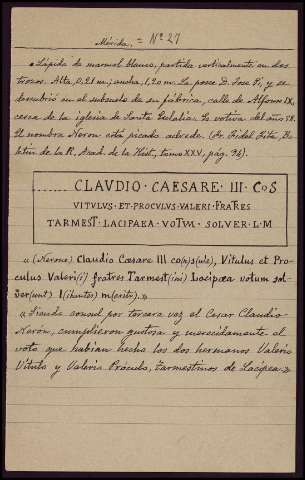 Mérida. = Nº 27
«Lápida de marmol blanco, partida verticalmente en dos
trozos. Alta, 0,21 m.; ancha, 1,20 m. La posee D. Jose Pí, y se
descubrió en el subsuelo de su fábrica, calle de Alfonso IX,
cerca de la iglesia de Santa Eulalia. Es votiva del año 58.
El nombre Neron está picado adrede. (Pr. Fidel Fita, Bo-
letín de la R. Acad. de la Hist., tomo XXV, pág. 96).
CLAUDIO · CAESARE · III · CoS
VITVLVS · ET · PROCVLVS · VALERI · FRATRES
TARMEST · LACIPAEA · VOTVM · SOLVER · L · M
«(Nerone) Claudio Cæsare III co(n)s(ule), Vitulus et Pro-
culus Valeri(i) fratres Tarmest(ini) Lacipæa votum sol-
ver(unt) l(ibentes) m(erito).»
«Siendo consul por tercera vez el Cesar Claudio
Nerón, cumplieron gustosa y merecidamente el
voto que habían hecho los dos hermanos Valerio
Vítulo y Valerio Próculo, tarmestinos de Lacípea.»